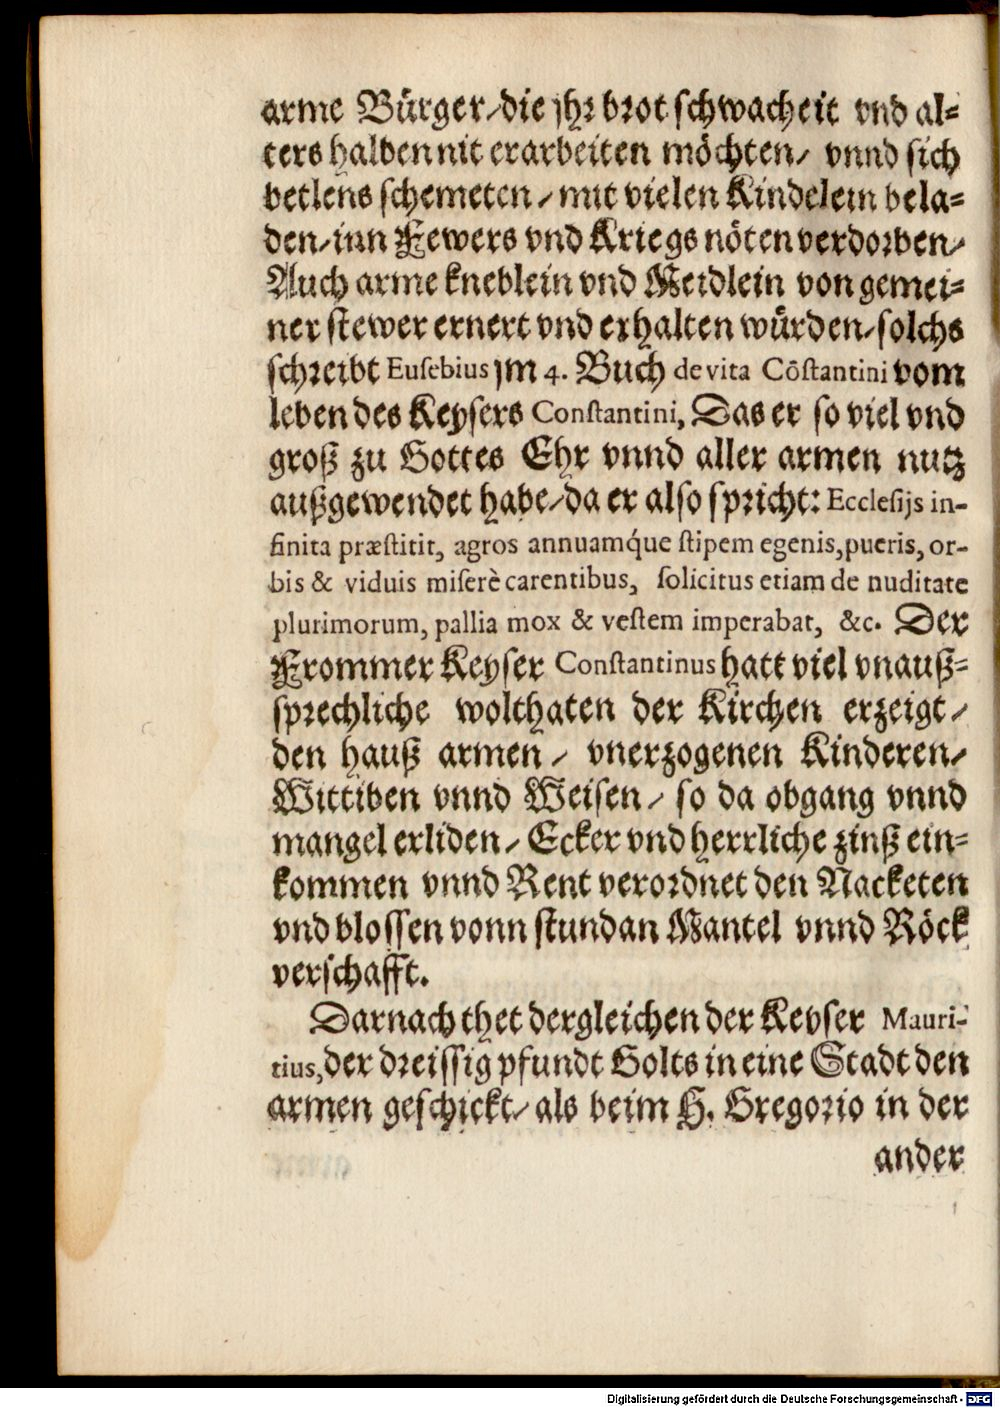 arme Bürger/die jhr brot schwacheit vnd al-
ters halben nit erarbeiten möchten/ vnnd sich
betlens schemeten/ mit vielen Kindelein bela-
den/inn Fewers vnd Kriegs nöten verdorben/
Auch arme kneblein vnd Meidlein von gemei-
ner stewer ernert vnd erhalten würden/solchs
schreibt Eusebius jm 4. Buch de vita Cõstantini vom
leben des Keysers Constantini, Das er so viel vnd
groß zu Gottes Ehr vnnd aller armen nutz
außgewendet habe/da er also spricht: Ecclesijs in-
finita præstitit, agros annuamq́ue stipem egenis,pueris, or-
bis & viduis miserè carentibus, solicitus etiam de nuditate
plurimorum, pallia mox & vestem imperabat, &c. Der
Frommer Keyser Constantinus hatt viel vnauß-
sprechliche wolthaten der Kirchen erzeigt/
den hauß armen / vnerzogenen Kinderen/
Wittiben vnnd Weisen/ so da obgang vnnd
mangel erliden/ Ecker vnd herrliche zinß ein-
kommen vnnd Rent verordnet den Nacketen
vnd blossen vonn stundan Mantel vnnd Röck
verschafft.
Darnach thet dergleichen der Keyser Mauri-
tius,der dreissig pfundt Golts in eine Stadt den
armen geschickt/ als beim H. Gregorio in der
ander
Digitalisierung gefördert durch die Deutsche Forschungsgemeinschaft - DFG